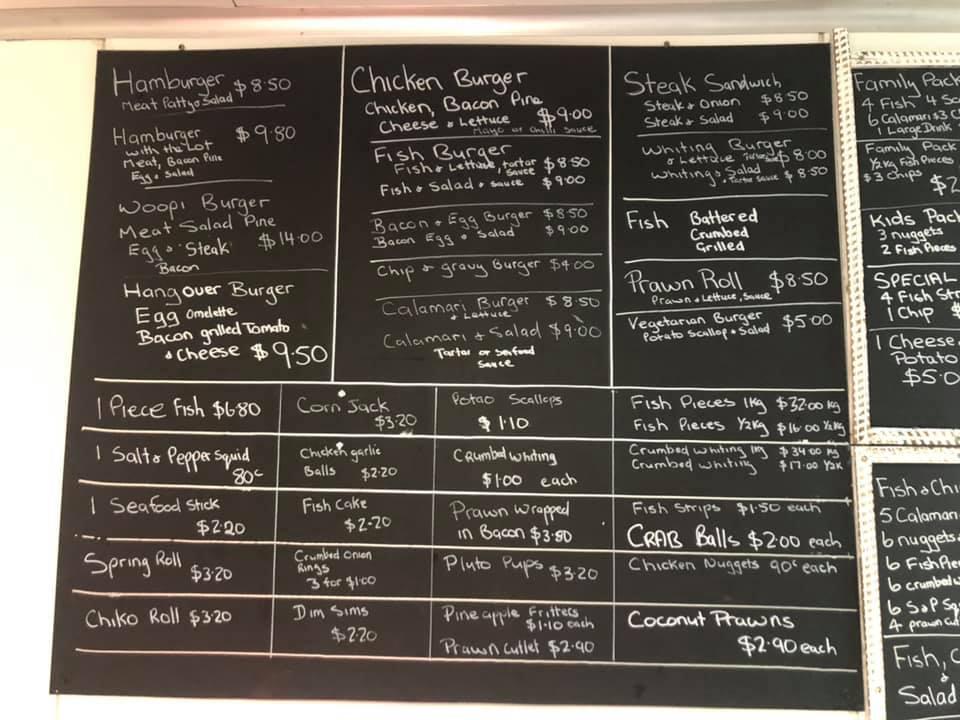 Hamburger $8.50
Meat Patty & Salad
Hamburger $9.80
with the Lot
Meat, Bacon Pine
Egg & Salad
Woopi Burger
Meat Salad Pine
Egg & Steak $14.00
Bacon
Hangover Burger
Egg Omelette
Bacon grilled Tomato
& Cheese $9.50
Chicken Burger
Chicken, Bacon Pine
Cheese & Lettuce $9.00
Mayo or Chilli Sauce
Fish Burger
Fish & Lettuse, tartar sauce $8.50
Fish & Salad & sauce $9.00
Bacon & Egg Burger $8.50
Bacon Egg & Salad $9.00
Chip & gravy Burger $4.00
Calamari Burger $8.50
& Lettuce
Calamari & Salad $9.00
Tartar or Seafood
Sauce
Steak Sandwich
Steak & Onion $8.50
Steak & Salad $9.00
Whiting Burger
& Lettuce $8.00
Whiting & Salad $8.50
& Tartar Sauce
Fish Battered
Crumbed
Grilled
Prawn Roll $8.50
Prawn & Lettuce, Sauce
Vegetarian Burger $5.00
Potato Scallop & Salad
1 Piece Fish $6.80
Corn Jack
$3.20
Potao Scallops
$1.10
Fish Pieces 1kg $32.00 kg
Fish Pieces ½kg $16.00 ½kg
1 Salt & Pepper Squid
80c
Chicken garlic
Balls $2.20
Crumbed Whiting
$1.00 each
Crumbed Whiting 1kg $34.00 kg
Crumbed Whiting $17.00 ½K
1 Seafood Stick
$2.20
Fish Cake
$2.20
Prawn Wrapped
in Bacon $3.80
Fish Strips $1.50 each
CRAB Balls $2.00 each
Spring Roll $3.20
Crumbed Onion
Rings
3 for $1.00
Pluto Pups $3.20
Chicken Nuggets 90c each
Chiko Roll $3.20
Dim Sims
$2.20
Pineapple Fritters
$1.10 each
Prawn Cutlet $2.90
Coconut Prawns
$2.90 each
Family Pack
4 Fish 4
6 Calamari $3
1 Large Drink
Family Pack
½kg Fish Pieces
$3 Chips
Kids Pack
3 nuggets
2 Fish Pieces
SPECIAL
4 Fish
1 Chip $
1 Cheese
Potato
$5.0
Fish & Chi
5 Calamari
6 nuggets
6 Fish
6 crumbed
6 S & P
4 prawn
Fish,
&
Salad